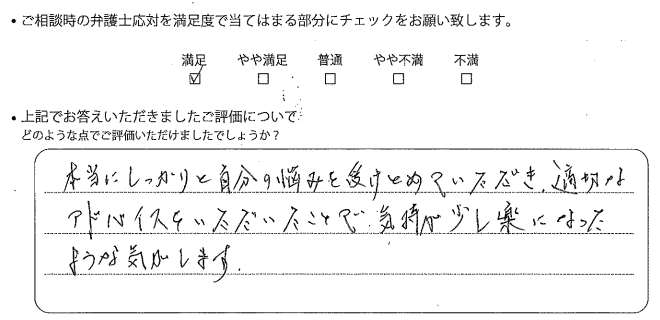 • ご相談時の弁護士応対を満足度で当てはまる部分にチェックをお願い致します。
満足 やや満足 普通 やや不満 不満
☑ □ □ □ □
• 上記でお答えいただきましたご評価について
どのような点でご評価いただけましたでしょうか?
本当にしっかりと自分の悩みを受けとめていただき、適切な
アドバイスをいただいたことで、気持が少し楽になった
ような気がします。